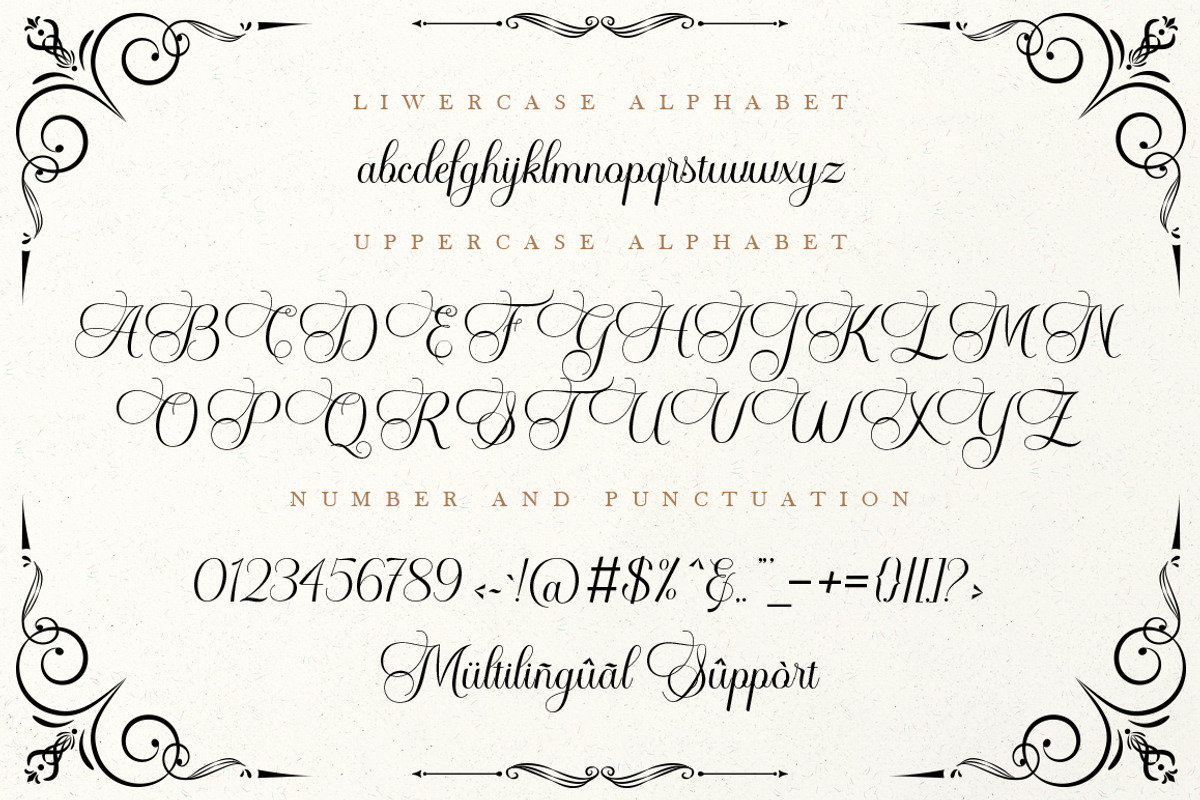 LIWERCASE ALPHABET
abcdefghijklmnopqrstuvwxyz
UPPERCASE ALPHABET
ABCDEFGHIJKLMN
OPQRSTUVWXYZ
NUMBER AND PUNCTUATION
0123456789 <~`!@#$%^&..”’_–+={}|[]?>
Mültiliñgûãl Sûppòrt